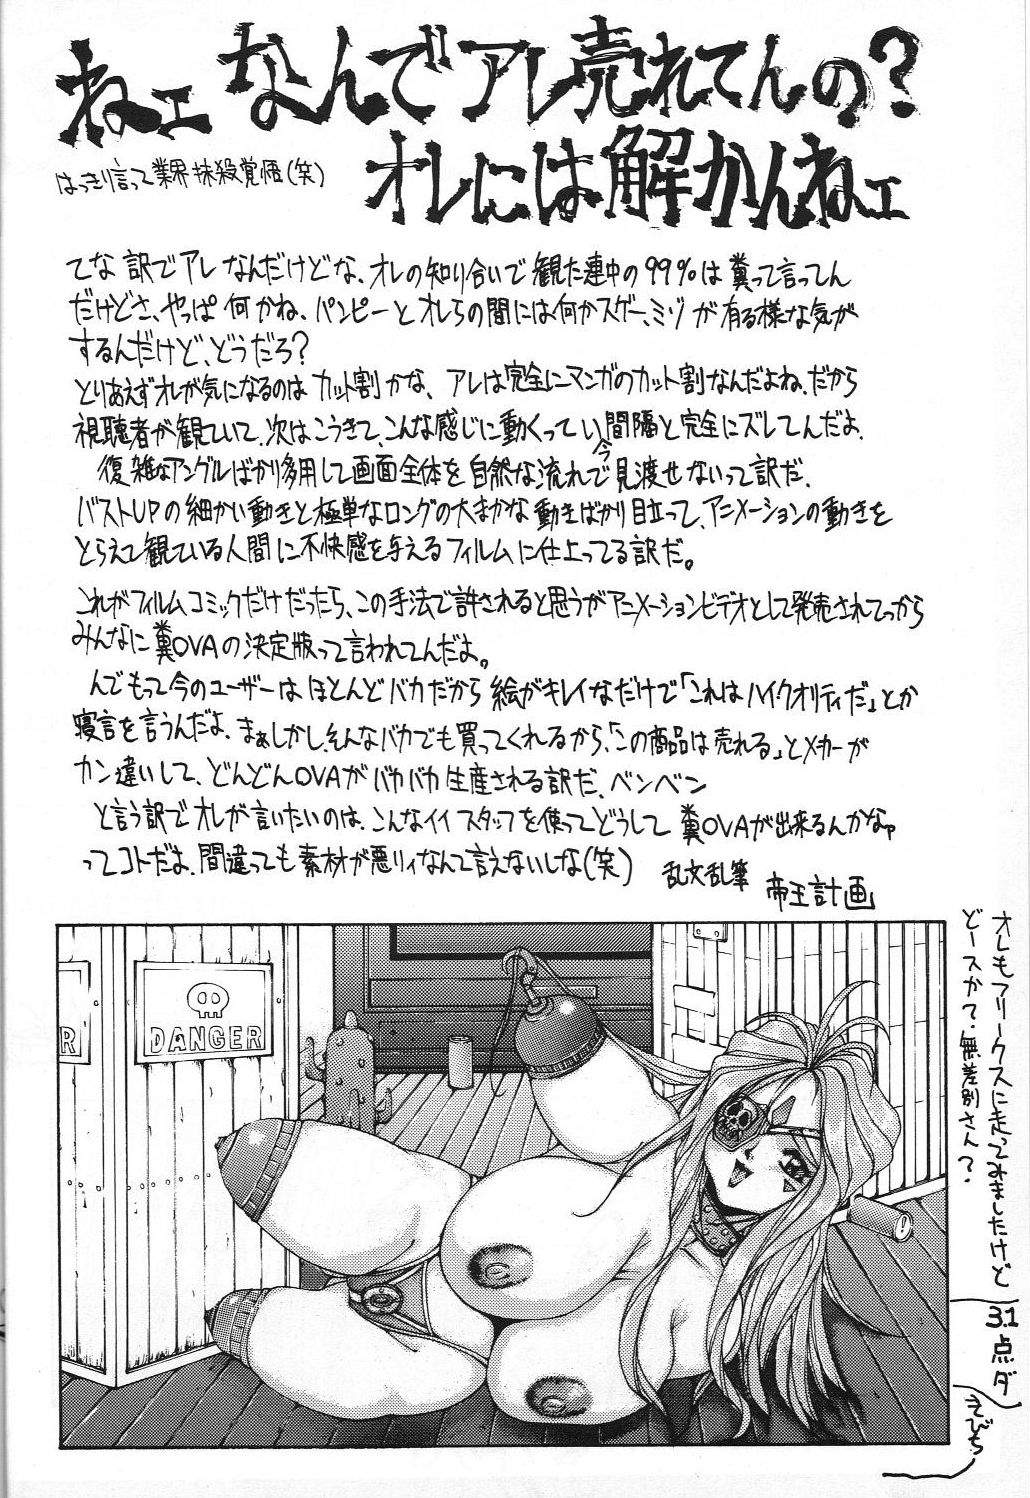 ねェ なんでアレ売れてんの?
オレには解かんねェ
はっきり言って業界抹殺覚悟(笑)
てな訳でアレなんだけどな、オレの知り合いで観た連中の99%は糞って言ってん
だけどさ、やっぱ何かね、パンピーとオレらの間には何かスゲー、ミゾが有る様な気が
するんだけど、どうだろ?
とりあえずオレが気になるのはカット割かな、アレは完全にマンガのカット割なんだよね、だから
視聴者が観ていて、次はこうきて、こんな感じに動くってい間隔と完全にズレてんだよ、
復雑なアングルばかり多用して画面全体を自然な流れで今見渡せないって訳だ、
バストUPの細かい動きと極単なロングの大まかな動きばかり目立って、アニメーションの動きを
とらえて観ている人間に不快感を与えるフィルムに仕上ってる訳だ。
これがフィルムコミックだけだったら、この手法で許されると思うがアニメーションビデオとして発売されてっから
みんなに糞OVAの決定版って言われてんだよ。
んでもって今のユーザーはほとんどバカだから絵がキレイなだけで「これはハイクオリティだ」とか
寝言を言うんだよ、まぁしかし、そんなバカでも買ってくれるから、「この商品は売れる」とメーカーが
カン違いして、どんどんOVAがバカバカ生産される訳だ、ベンベン
と言う訳でオレが言いたいのは、こんなイイスタッフを使ってどうして糞OVAが出来るんかなァ
ってコトだよ、間違っても素材が悪リィなんて言えないしな(笑)
乱文乱筆
帝王計画
オレもフリークスに走ってみましたけど
どースかて、無差別さん?
31点ダ
えびち
R
DANGER